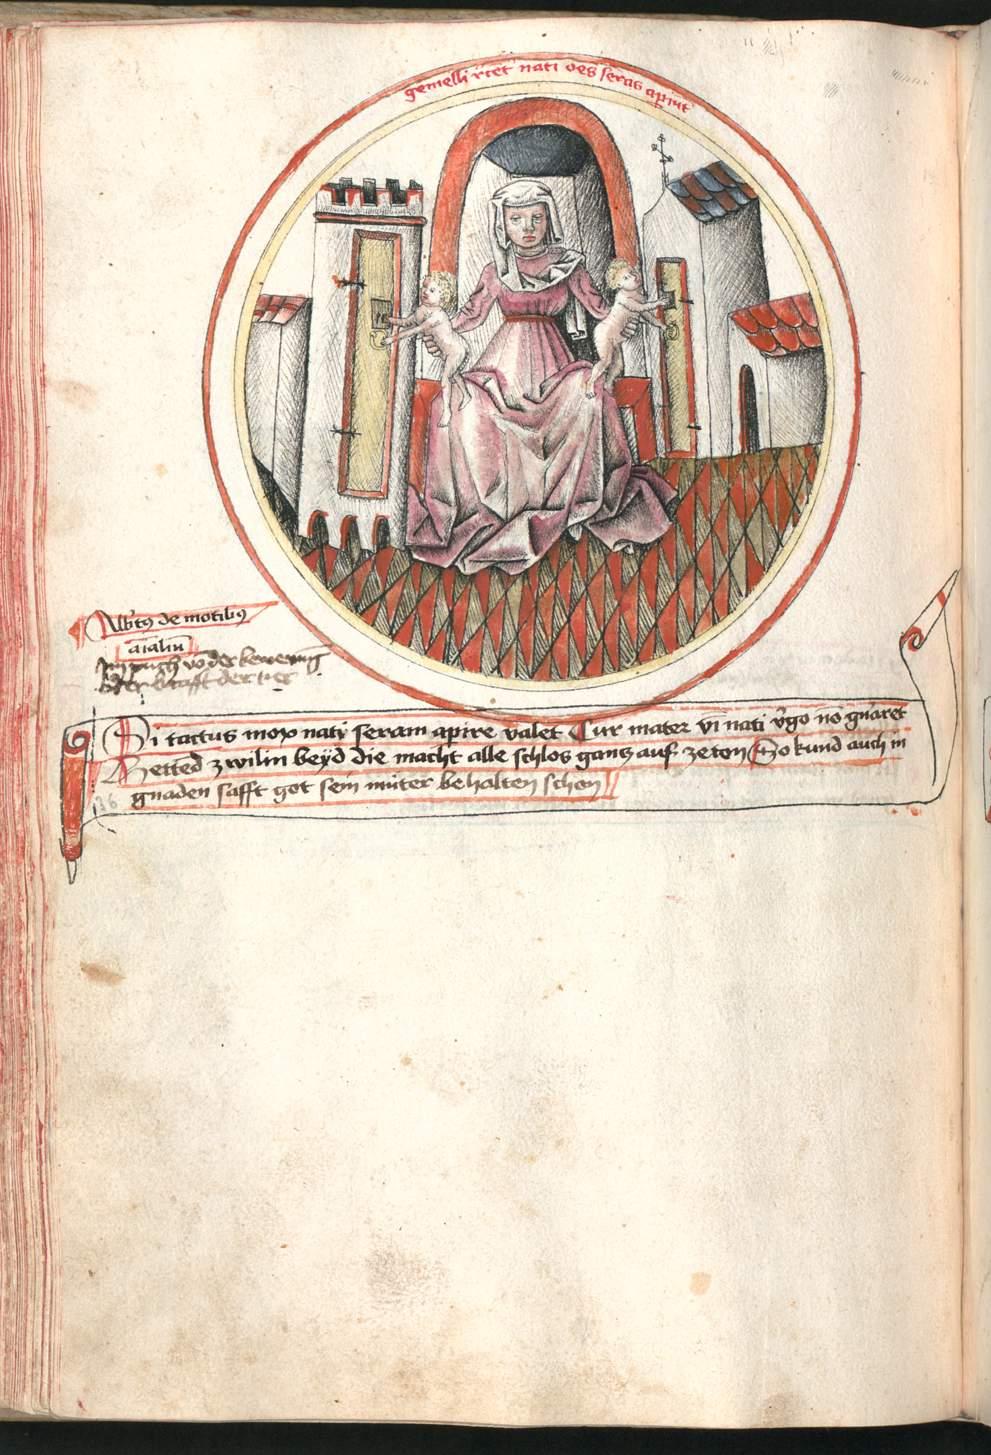 gemelli rēēt nati oēs seras apiūt
Albt9 de motibus
aīaliū
Im puch vō der bewegūg
oder krafft der tier
Si tactus mox natȳ seram apire valet Cur mater vi nati v̄go nō gn̄aret
Hetted zwilin beÿd die macht alle schlos gantz auf zeton So kund auch in
gnaden safft got sein můter behalten schon
136